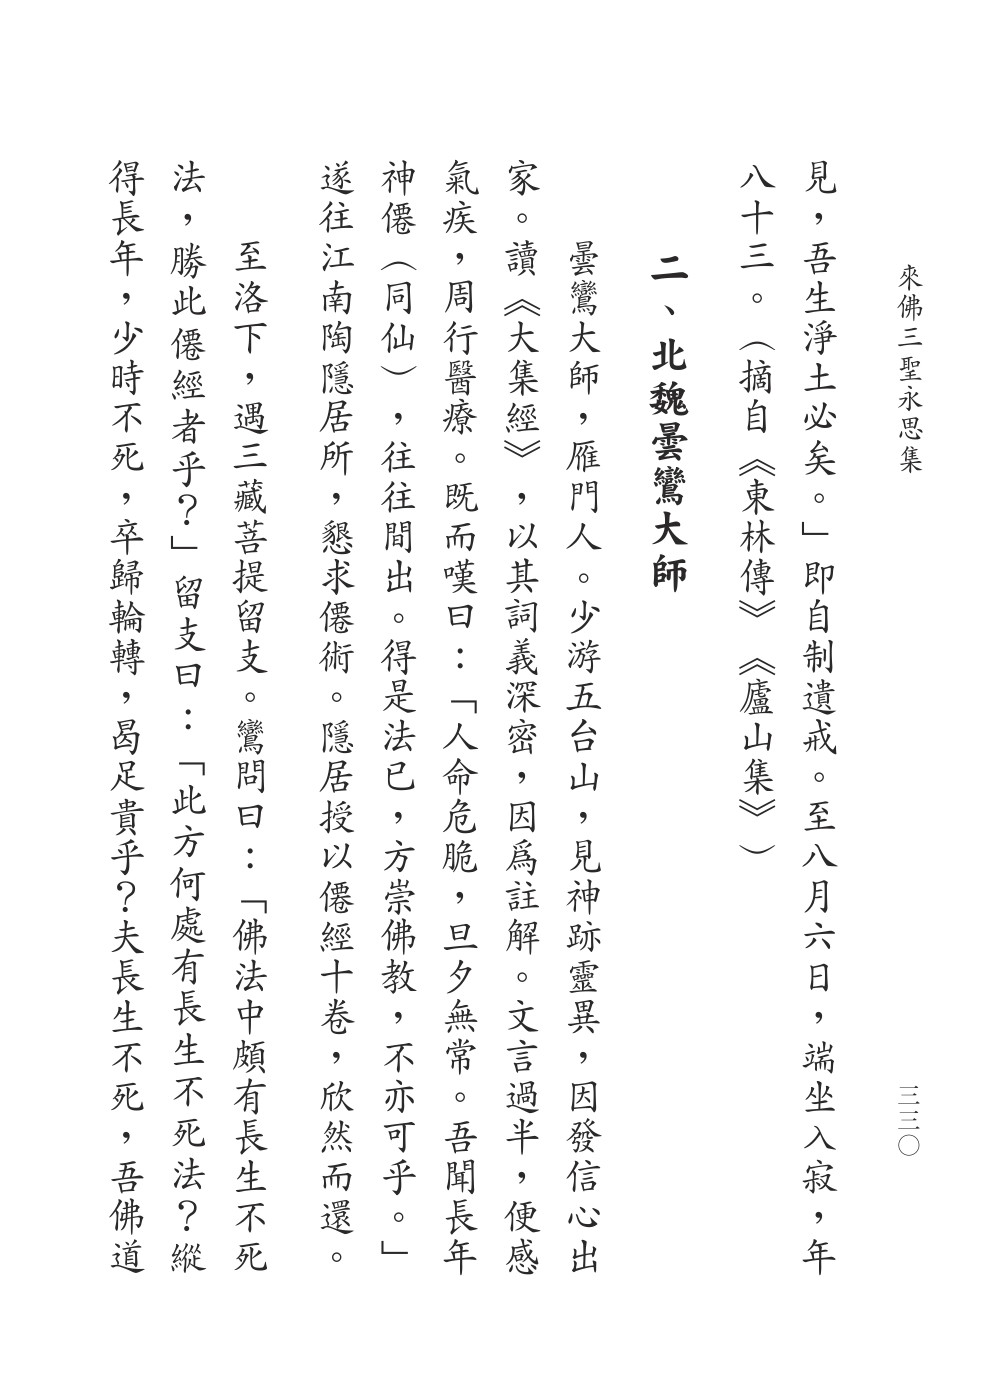 來佛三聖永思集
三三〇
見，吾生淨土必矣。」即自制遺戒。至八月六日，端坐入寂，年
八十三。（摘自《東林傳》《廬山集》）
二、北魏曇鸞大師
曇鸞大師，雁門人。少游五台山，見神跡靈異，因發信心出
家。讀《大集經》，以其詞義深密，因爲註解。文言過半，便感
氣疾，周行醫療。既而嘆曰：「人命危脆，旦夕無常。吾聞長年
神僊（同仙），往往間出。得是法已，方崇佛教，不亦可乎。」
遂往江南陶隱居所，懇求僊術。隱居授以僊經十卷，欣然而還。
至洛下，遇三藏菩提留支。鸞問曰：「佛法中頗有長生不死
法，勝此僊經者乎？」留支曰：「此方何處有長生不死法？縱
得長年，少時不死，卒歸輪轉，曷足貴乎？夫長生不死，吾佛道